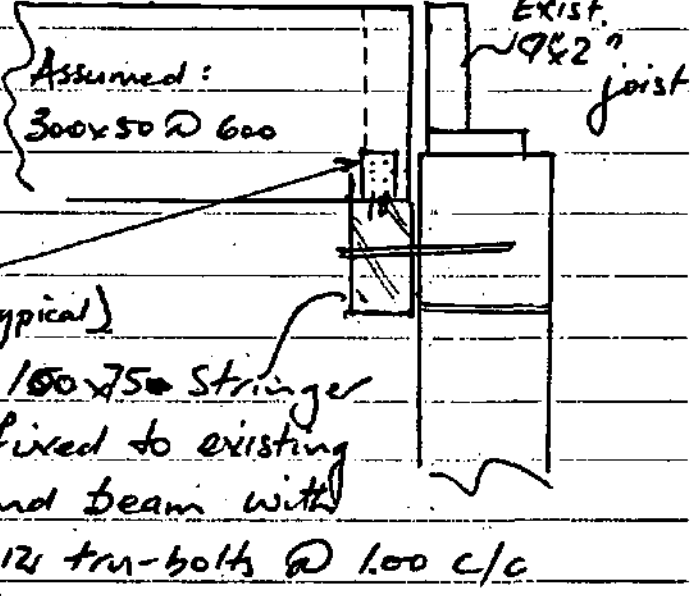 Exist.
9"x2"
joist
Assumed:
300x50 @ 600
ypical)
150x75 Stringer
fixed to existing
nd beam with
12 tru-bolts @ 1.00 c/c